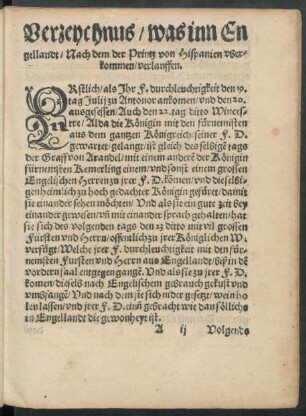 Verzeychnus / was inn En
gellandt / Nach dem der Printz von Hispanien vber-
kommen / verlauffen.
Erstlich / als Ihr F. durchleuchtigkeit den 19.
tag Julij zu Antonor ankomen / vnd den 20.
außgesessen / Auch den 22. tag dito Wince-
stre / Alda die Königin mit den fürnemsten
auß dem gantzen Königreich / seiner F. D.
gewartet / gelangt / ist gleich des selbigē tags
der Graff von Arandel / mit einem anderē der Königin
fürnemsten Kemerling einem / vnd sonst einem grossen
Engelischen Herren zu jrer F. D. kōmen / vnd die selbi-
gen haimlich zu hoch gedachter Königin gefüret / damit
sie einander sehen möchten / Vnd als sie ein gute zeyt bey
einander gewesen / vñ mit einander sprach gehalten / hat
sie sich des volgenden tags den 23 ditto mit vil grossen
Fürsten vnd Herrn / offentlich zu jrer Königlichen W.
verfügt Welche jrer F. Durchleuchtigkeit mit den für-
nemsten Fursten vnd Herrn aus Engellandt / biß in dē
vordern saal entgegen gangē. Vnd als sie zu jrer F. D.
komen / die selb nach Engelischem gebrauch gekust vnd
vmbfangē / Vnd nach dem sie sich nider gesetzt / wein ho
len lassen / vnd jrer F. D. eins gebracht wie dan söllichs
in Engellandt die gewonheyt ist.
A ij Volgends